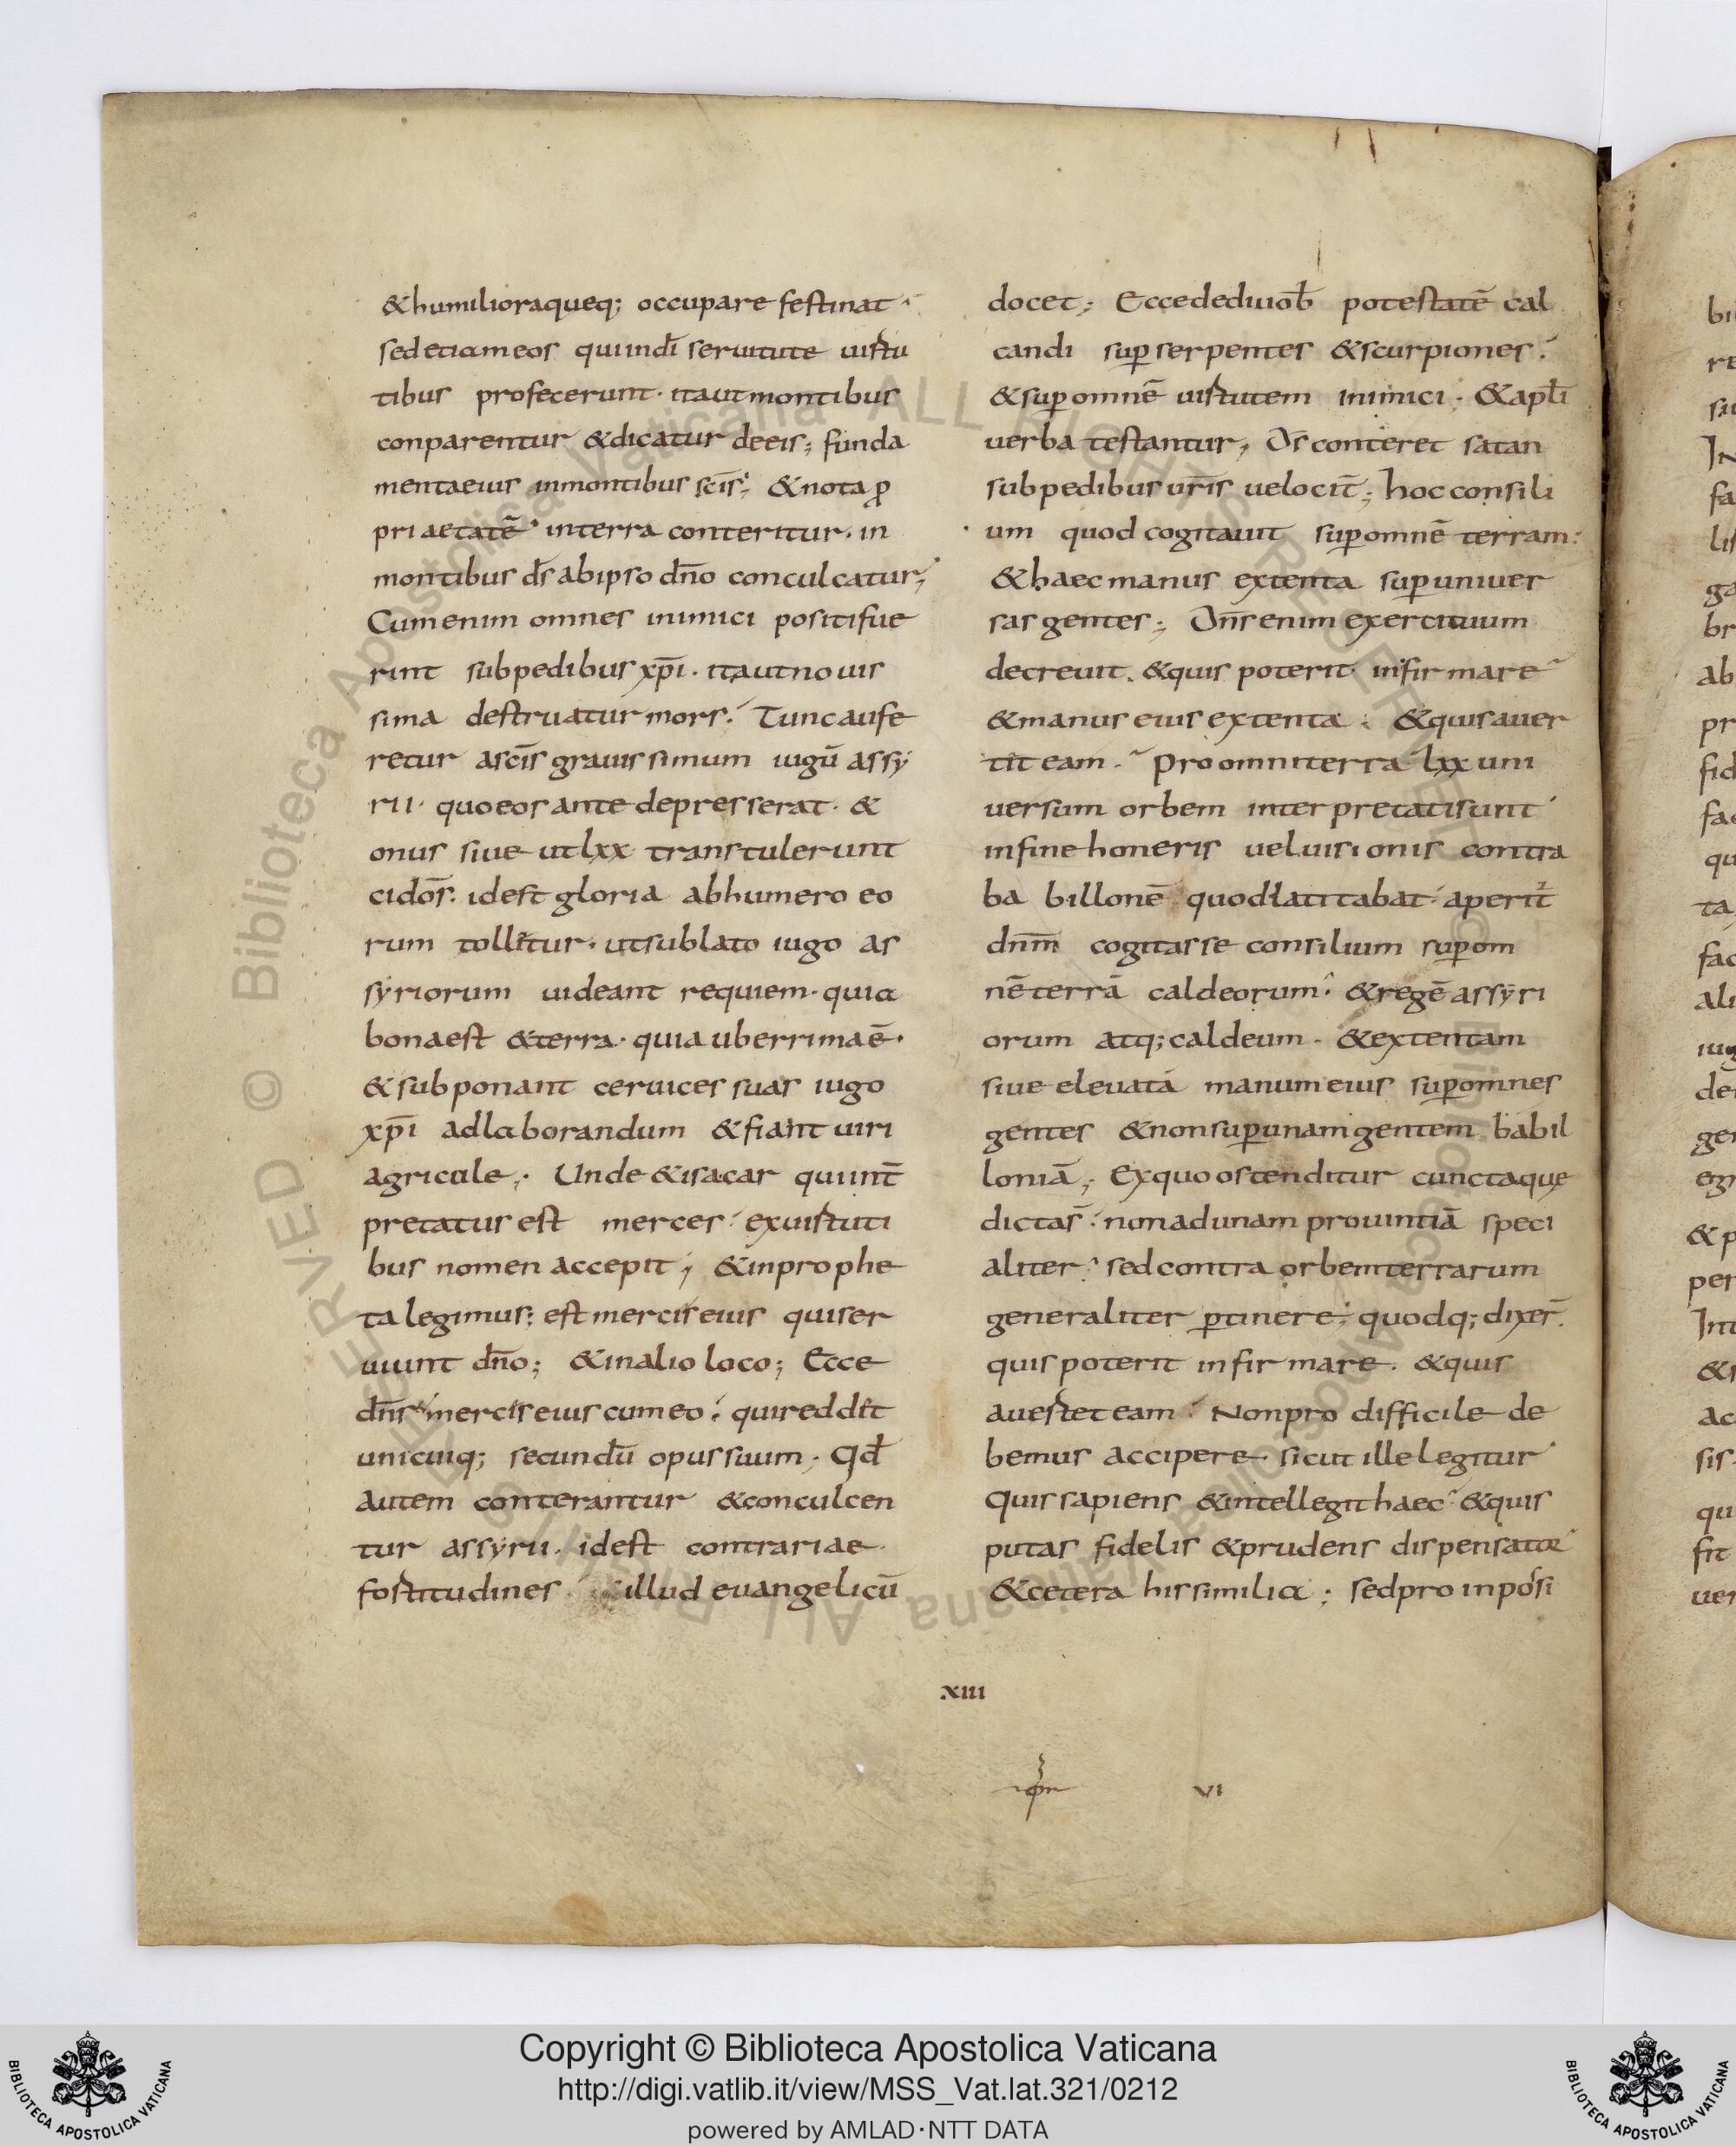 &humilioraqueq; occupare festinat·
sed etiam eos qui indī seruitute uirtu
tibus profecerunt· itaut montibus
conparentur &dicatur deeis; funda
mentaeius inmontibus scīs; &nota ꝓ
pri aetatē· interra conteritur· in
montibus d̄s abipso dn̄o conculcatur;
Cum enim omnes inimici positi fue
rint subpedibus xp̄i· itaut nouis
sima destruatur mors: Tunc aufe
retur asc̄is grauissimum iugū assy
rii· quo eos ante depresserat· &
onus siue ut lxx transtulerunt
cidōs· idest gloria abhumero eo
rum tollitur· ut sublato iugo as
syriorum uideant requiem· quia
bona est &terra· quia uberrima ē·
& subponant ceruices suas iugo
xp̄i adlaborandum &fiant uiri
agricule; Unde &isacar qui int̄
pretatus est merces· exuirtuti
bus nomen accepit; &inprophe
ta legimus; est mercis eius quiser
uiunt dn̄o; &inalio loco; Ecce
dn̄s mercis eius cum eo: qui reddit
unicuiq; secundū opus suum· Qd̄
autem conterantur &conculcen
tur assyrii· idest contrariae
fortitudines illud euangelicū
docet; Ecce dedi uob̄ potestatē cal
candi suꝑ serpentes &scurpiones:
&suꝑ omnē uirtutem inimici· &apl̄i
uerba testantur; D̄s conteret satan
subpedibus ur̄is uelocit̄; hoc consili
um quod cogitauit suꝑ omnē terram:
&haec manus extenta suꝑ uniuer
sas gentes; Dn̄s enim exercituum
decreuit· &quis poterit infirmare
&manus eius extenta: &quis auer
tit eam· Pro omni terra lxx uni
uersum orbem interpretati sunt
infine honeris uel uisionis contra
ba billonē quod latitabat· aperit̄
dn̄m cogitasse consilium suꝑ om
nē terrā caldeorum· &regē assyri
orum atq; caldeum· &extentam
siue eleuatā manum eius suꝑ omnes
gentes &non suꝑ unam gentem babil
loniā; Ex quo ostenditur cuncta que
dicta s̄· non ad unam prouintiā speci
aliter· sed contra orbem terrarum
generaliter ꝑtinere; quodq; dixer̄
quis poterit infirmare· &quis
auertet eam· Non pro difficile de
bemus accipere sicut ille legitur
Quis sapiens &intellegit haec &quis
putas fidelis &prudens dispensator
&cetera his similia; sed pro inposi
xiii
vi
Copyright © Biblioteca Apostolica Vaticana
http://digi.vatlib.it/view/MSS_Vat.lat.321/0212
powered by AMLAD·NTT DATA
BIBLIOTECA APOSTOLICA VATICANA
BIBLIOTECA APOSTOLICA VATICANA